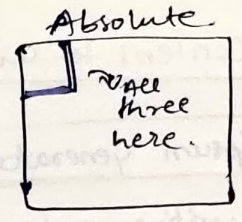 Absolute.
All
three
here.